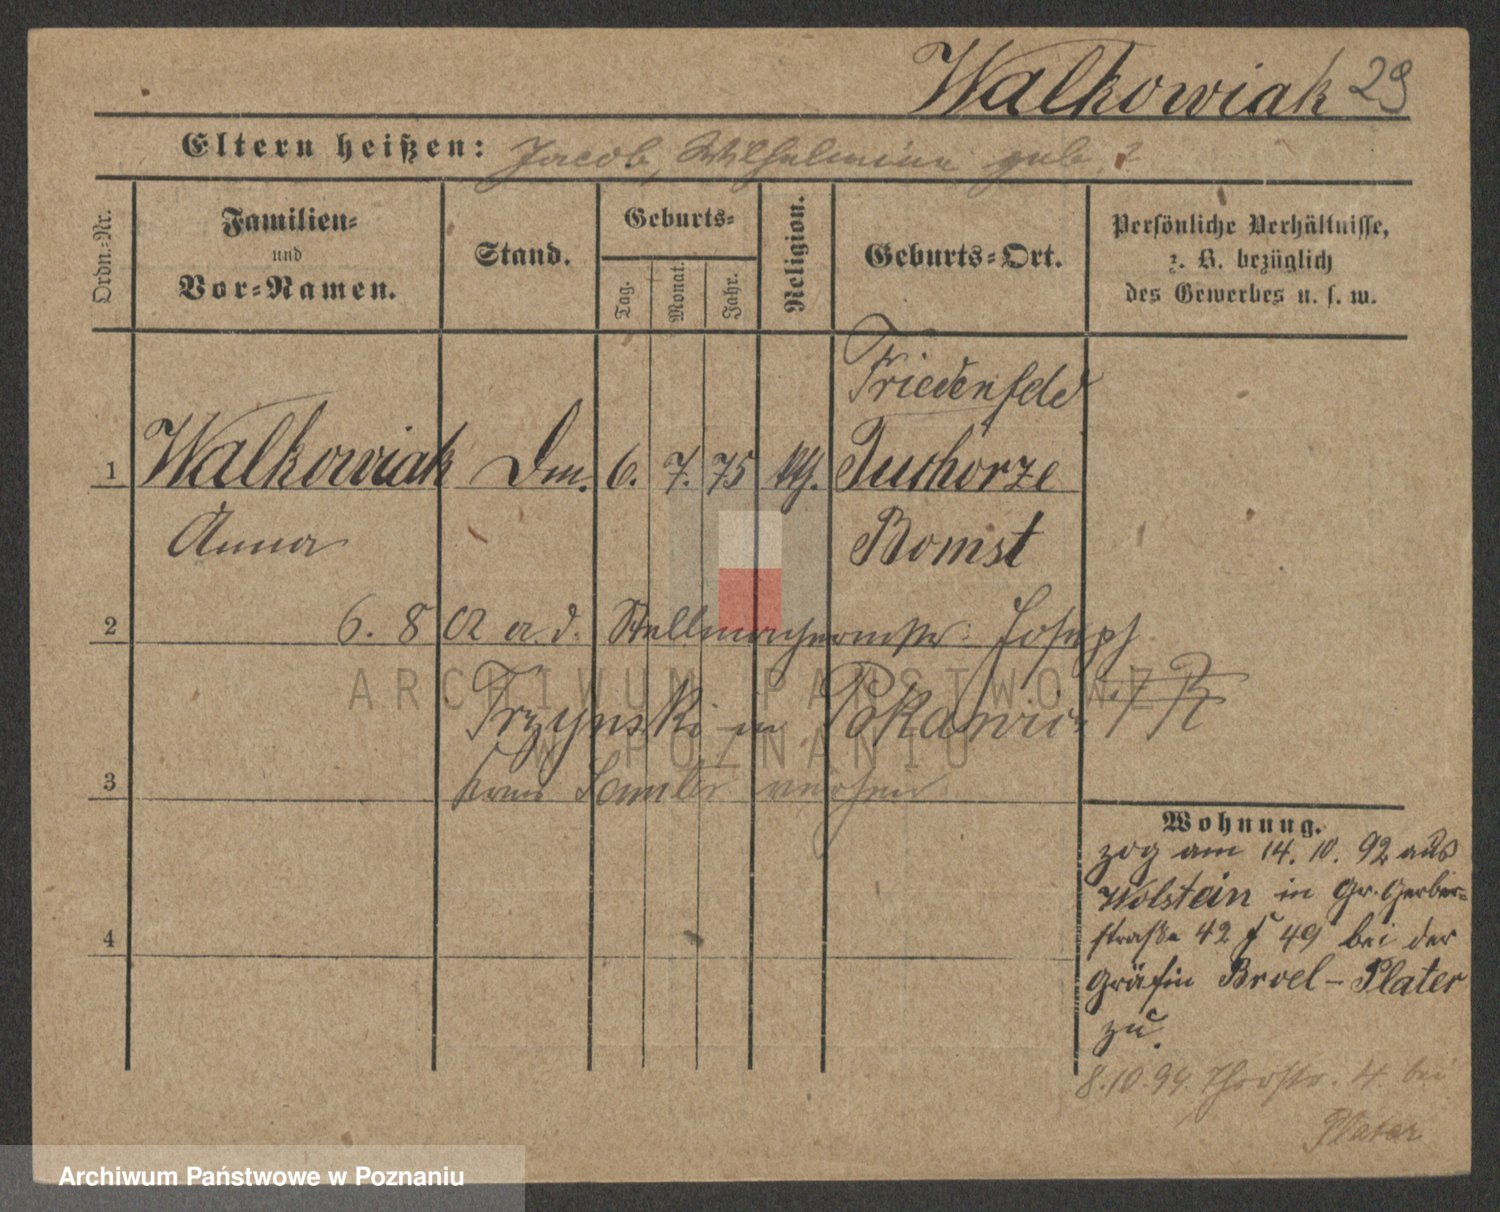 Walkowiak 29
Eltern heißen: Jacob, Wilhelmine geb. ?
Ordn.-Nr.
Familien-
und
Vor-Namen.
Stand.
Geburts-
Tag.
Monat.
Jahr.
Religion.
Geburts-Ort.
Persönliche Verhältnisse,
z. B. bezüglich
des Gewerbes u. s. w.
Friedenfeld
1 Walkowiak Dm. 6. 7. 75 kth. Tuchorze
Anna Bomst
2 6. 8 02 a. d. Stellmachermstr. Joseph
Trzynski in
3
Wohnung.
zog am 14. 10. 92 aus
Wolstein in Gr. Gerber-
straße 42 49 bei der
4
Gräfin Broel-Plater
zu.
8. 10. 94 4 bei
Plater
ARCHIWUM PAŃSTWOWE
W POZNANIU
Archiwum Państwowe w Poznaniu